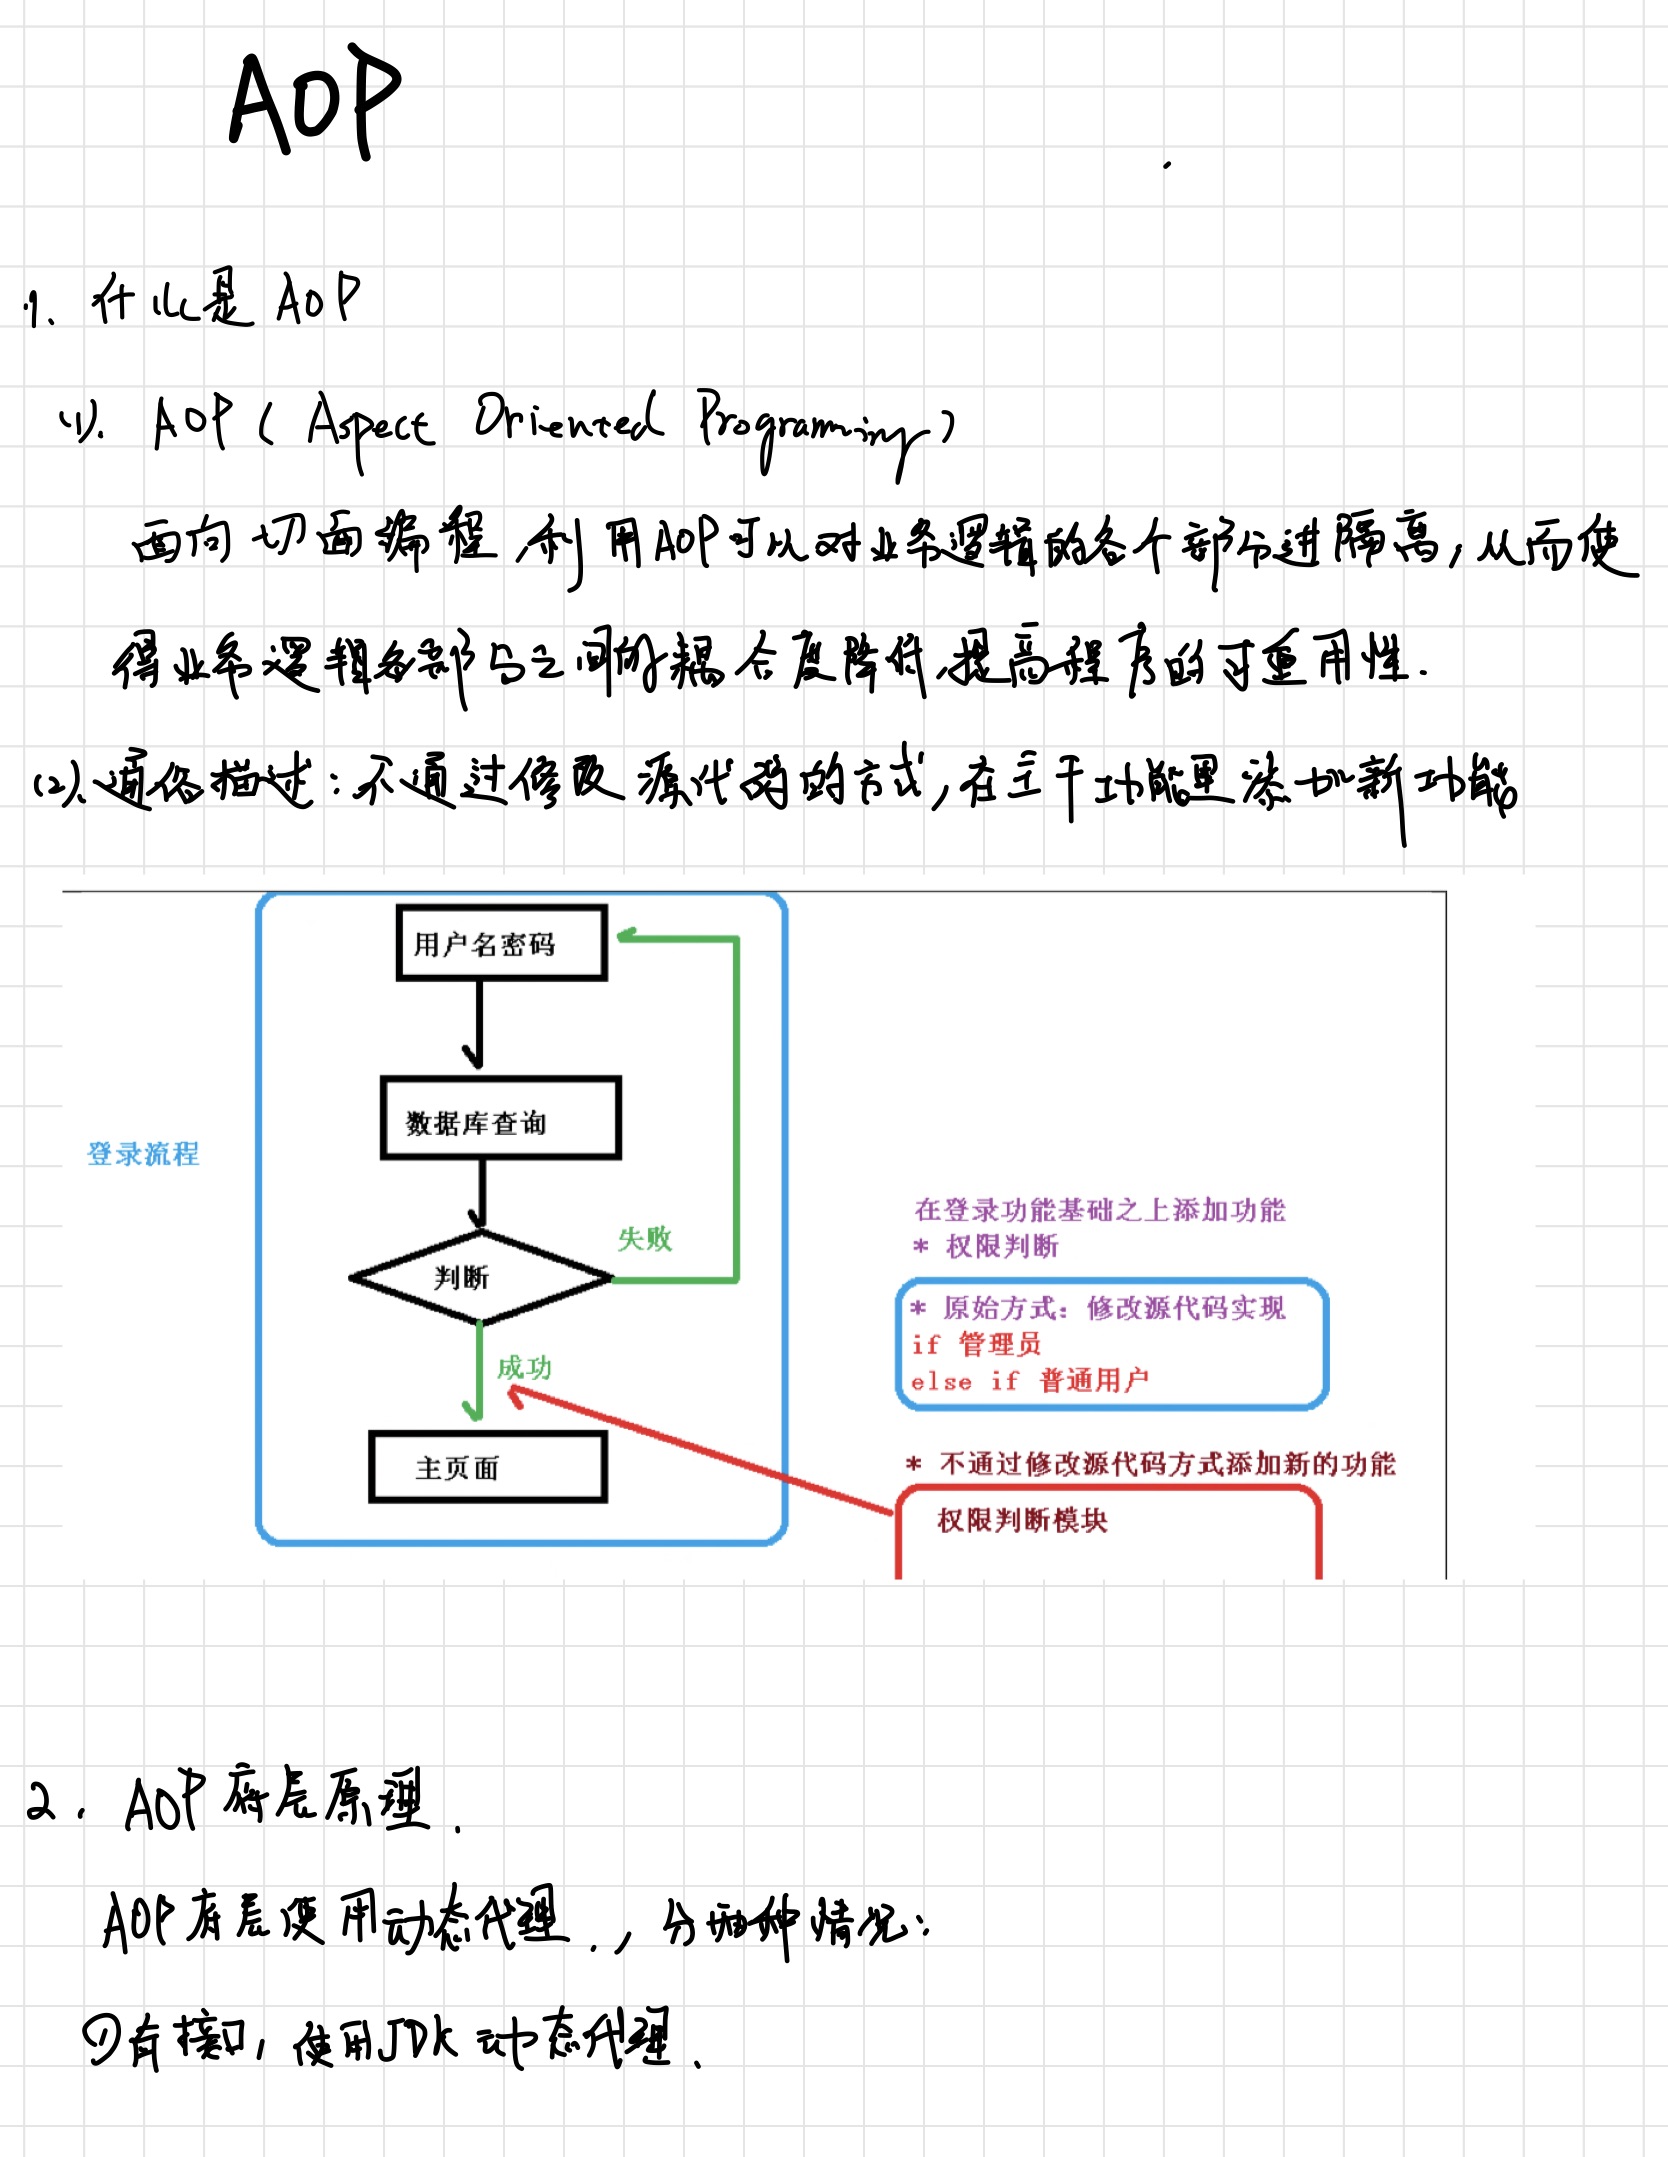 AOP
1. 什么是 AOP
(1). AOP ( Aspect Oriented Programming)
面向切面编程,利用AOP可以对业务逻辑的各个部分进隔离,从而使
得业务逻辑各部分之间的耦合度降低,提高程序的可重用性.
(2).通俗描述:不通过修改源代码的方式,在主干功能里添加新功能
用户名密码
数据库查询
登录流程
失败
判断
成功
主页面
在登录功能基础之上添加功能
* 权限判断
* 原始方式: 修改源代码实现
if 管理员
else if 普通用户
* 不通过修改源代码方式添加新的功能
权限判断模块
2. AOP 底层原理.
AOP 底层使用动态代理.,分两种情况:
①有接口,使用JDK 动态代理.